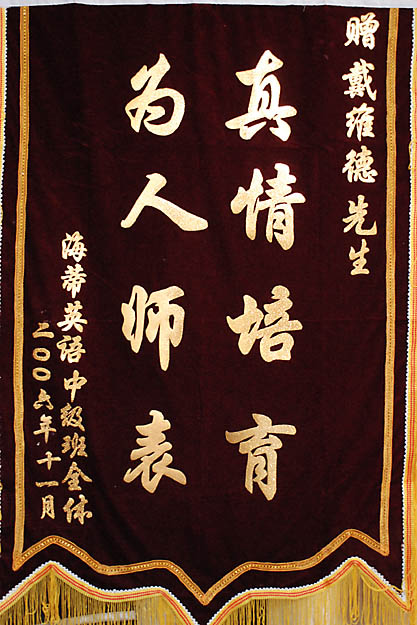 赠戴维德先生
真情培育
为人师表
海蒂英语中级班全体
二〇〇六年十一月